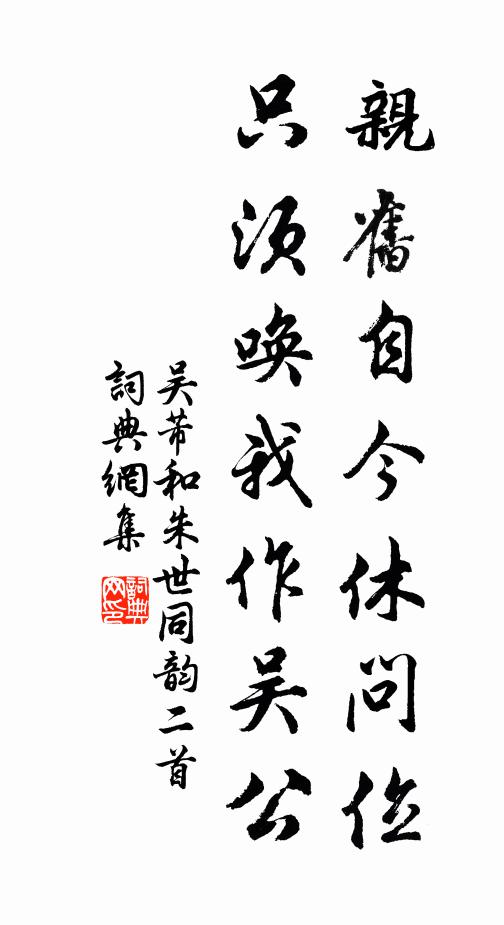 親舊自今休問位
只須喚我作吳公
吴芾和朱世同韵二首
詞典網集
詞典網印